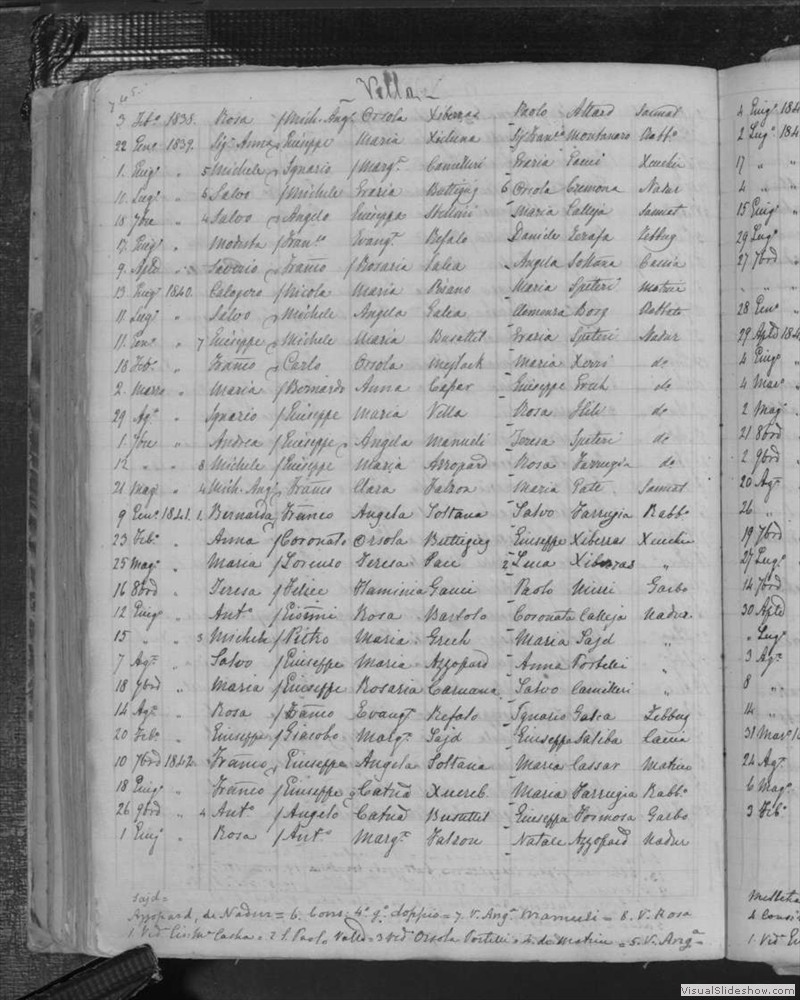 745.
Vella
3 Feb.º 1838. Rosa / Mich. Ang.º Orsola Xiberras Paolo Attard Sannat
22 Gen.º 1839. Sig.ª Anna Giuseppe Maria Xicluna Sg Fran.co Montanaro Rabb.º
1. Giug.º " 5 Michele / Ignazio / Marg.ª Camilleri Grazia Gauci Xeuchia
11 Lug.º " 6 Salvo / Michele Grazia Buttigieg 6 Orsola Cremona Nadur
18 7bre " 4 Salvo / Angelo Giuseppa Stellini Maria Calleja Sannat
17 Giug.º " Modesta / Fran.co Evang.ª Refalo Daniele Zerafa Zebbug
9. Aple " Saverio / Franco / Rosaria Galea Angela Soltana Caccia
13 Giug.º 1840. Calogero / Nicola Maria Pisano Maria Spiteri Matrice
11 Lug.º " Salvo / Michele Angela Galea Clemenza Borg Rabbato
11 Gen.º " 7 Giuseppe / Michele Maria Busuttil Grazia Spiteri Nadur
18 Feb.º " Franco / Carlo Orsola Mejlack Maria Xerri do
2. Marzo " Maria / Bernardo Anna Capar Giuseppe Grech do
29 Ag.º " Ignazio / Giuseppe Maria Villa Rosa do
1. 7bre " Andrea / Giuseppe Angela Manueli Teresa Spiteri do
12 " " 8 Michele / Giuseppe Maria Azzopard Rosa Farrugia do
21 Mag.º " 4 Mich. Ang.º / Franco Clara Falzon Maria Sannat
9 Gen.º 1841. 1. Bernarda / Franco Angela Soltana Salvo Farrugia Rabb.º
23 Feb.º " Anna / Coronato Orsola Buttigieg Giuseppe Xiberras Xeuchia
25 Mag.º " Maria / Lorenzo Teresa Pace 2 Luca Xiberras "
16 8bre " Teresa / Felice Flaminia Gauci Paolo Garbo
12 Giug.º " Ant.º / Giovñi Rosa Bartolo Coronata Calleja Nadur
15 " " 3 Michele / Pietro Maria Grech Maria Sajd "
7 Ag.º " Salvo / Giuseppe Maria Azzopard Anna Portelli "
18 7bre " Maria / Giuseppe Rosaria Caruana Salvo Camilleri "
14 Ag.º " Rosa / Franco Evang.ª Refalo Ignazio Galea Zebbug
20 Feb.º " Giuseppe / Giacobo Malg.ª Sajd Giuseppa Saliba Caccia
10 7bre 1842. Franco / Giuseppe Angela Soltana Maria Cassar Matrice
18 Giug.º " Franco / Giuseppe Catña Xuereb Maria Farrugia Rabb.º
26 9bre " 4 Ant.º / Angelo Catña Busuttil Giuseppa Formosa Garbo
1 Giug.º " Rosa / Ant.º Marg.ª Falzon Natale Azzopard Nadur
Sajd =
Azzopard, de Nadur = 6. Cons. 4º gº doppio = 7. V. Ang.ª Mamueli = 8. V. Rosa
1 Ved Casha = 2 f. Paolo Vella = 3 Ved Orsola Portelli = 4. de Matrice = 5. V. Ang.ª
4 Giug.º 184
2 Lug.º 184
17 "
4 "
15 Giug.º
29 Lug.º
27 7bre
" "
28 Gen.º
29 Aple 184
4 Giug.º
4 Mar.º
2 Mag.º
21 8bre
2 9bre
20 Ag.º
26 "
19 7bre
27 Lug.º
14 7bre
30 Aple
" Lug.º
3 Ag.º
8 "
14 "
31 Mar.º 1
24 Ag.º
6 Mag.º
3 Feb.º
1 Ved.
VisualSlideshow.com